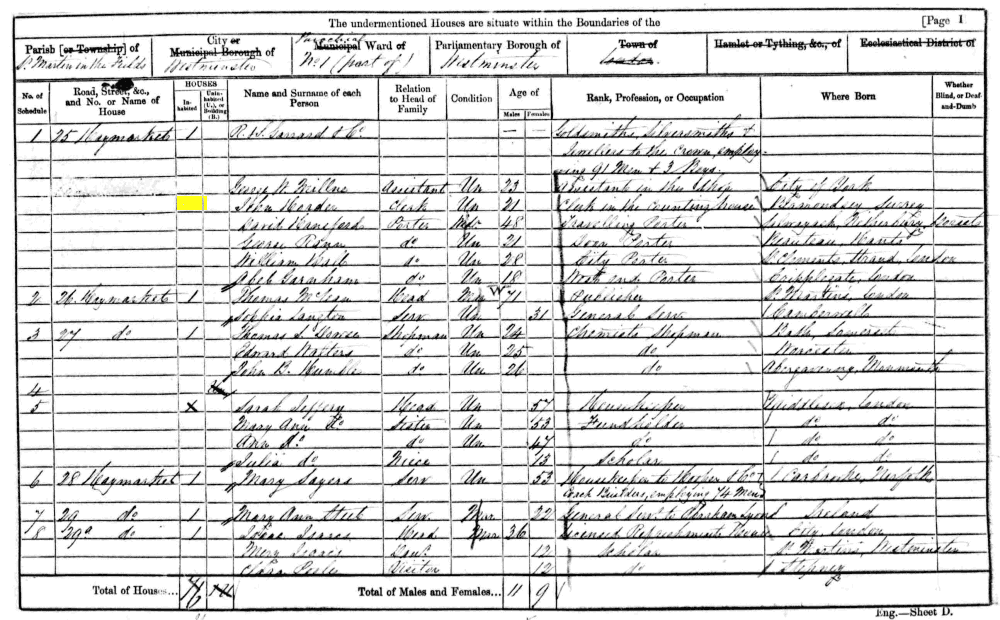 The undermentioned Houses are situate within the Boundaries of the [Page 1
Parish [or Township] of City or Municipal Borough of Municipal Ward of Parliamentary Borough of Town of Hamlet or Tything, &c., of Ecclesiastical District of
St Martin in the Fields Westminster Parochial No 1 (part of) Westminster
No. of Schedule Road, Street, &c., and No. or Name of House HOUSES In-habited Unin-habited (U.), or Building (B.) Name and Surname of each Person Relation to Head of Family Condition Age of Males Females Rank, Profession, or Occupation Where Born Whether Blind, or Deaf-and-Dumb
1 25 Haymarket 1 R. & S. Garrard & Co — — Goldsmiths, Silversmiths &
Jewellers to the Crown, employ-
ing 91 Men & 3 Boys
George W. Assistant Un 23 Assistant in the Shop City of York
John Clerk Un 21 Clerk in the Counting house Bermondsey Surrey
David Hansford Porter 48 Travelling Porter Dorset
George do Un 21 Door Porter Hants
William do Un 28 City Porter St Clements, Strand, London
Garnham do Un 18 West end Porter Cripplegate, London
2 26 Haymarket 1 Thomas McLean Head W 71 Publisher St Martins, London
Sophia Langton Serv Un 31 General Serv Camberwell
3 27 do 1 Thomas S. Shopman Un 24 Chemists Shopman Bath, Somerset
Edward Walters do Un 25 do Worcester
John B. Humble do Un 26 do Abergavenny, Monmouth
4
5 x Sarah Jeffery Head Un 57 Housekeeper Middlesex, London
Mary Ann Do Sister Un 53 Fundholder do do
Ann Do do Un 47 do do do
Julia do Niece 15 Scholar do do
6 28 Haymarket 1 Mary Sayers Serv Un 53 Housekeeper to Hooper & Co
Coach Builders, employing 74 Men Carbrooke, Norfolk
7 29 do 1 Mary Ann Steel Serv Mar 22 General Serv to Abraham Lyons Ireland
8 29a do 1 Isaac Isaacs Head Mar 36 Licensed Refreshment House City London
Mary Isaacs Daur 12 Scholar St Martins, Westminster
Clara Visitor 12 do Stepney
Total of Houses... Total of Males and Females... 11 9
Eng.—Sheet D.